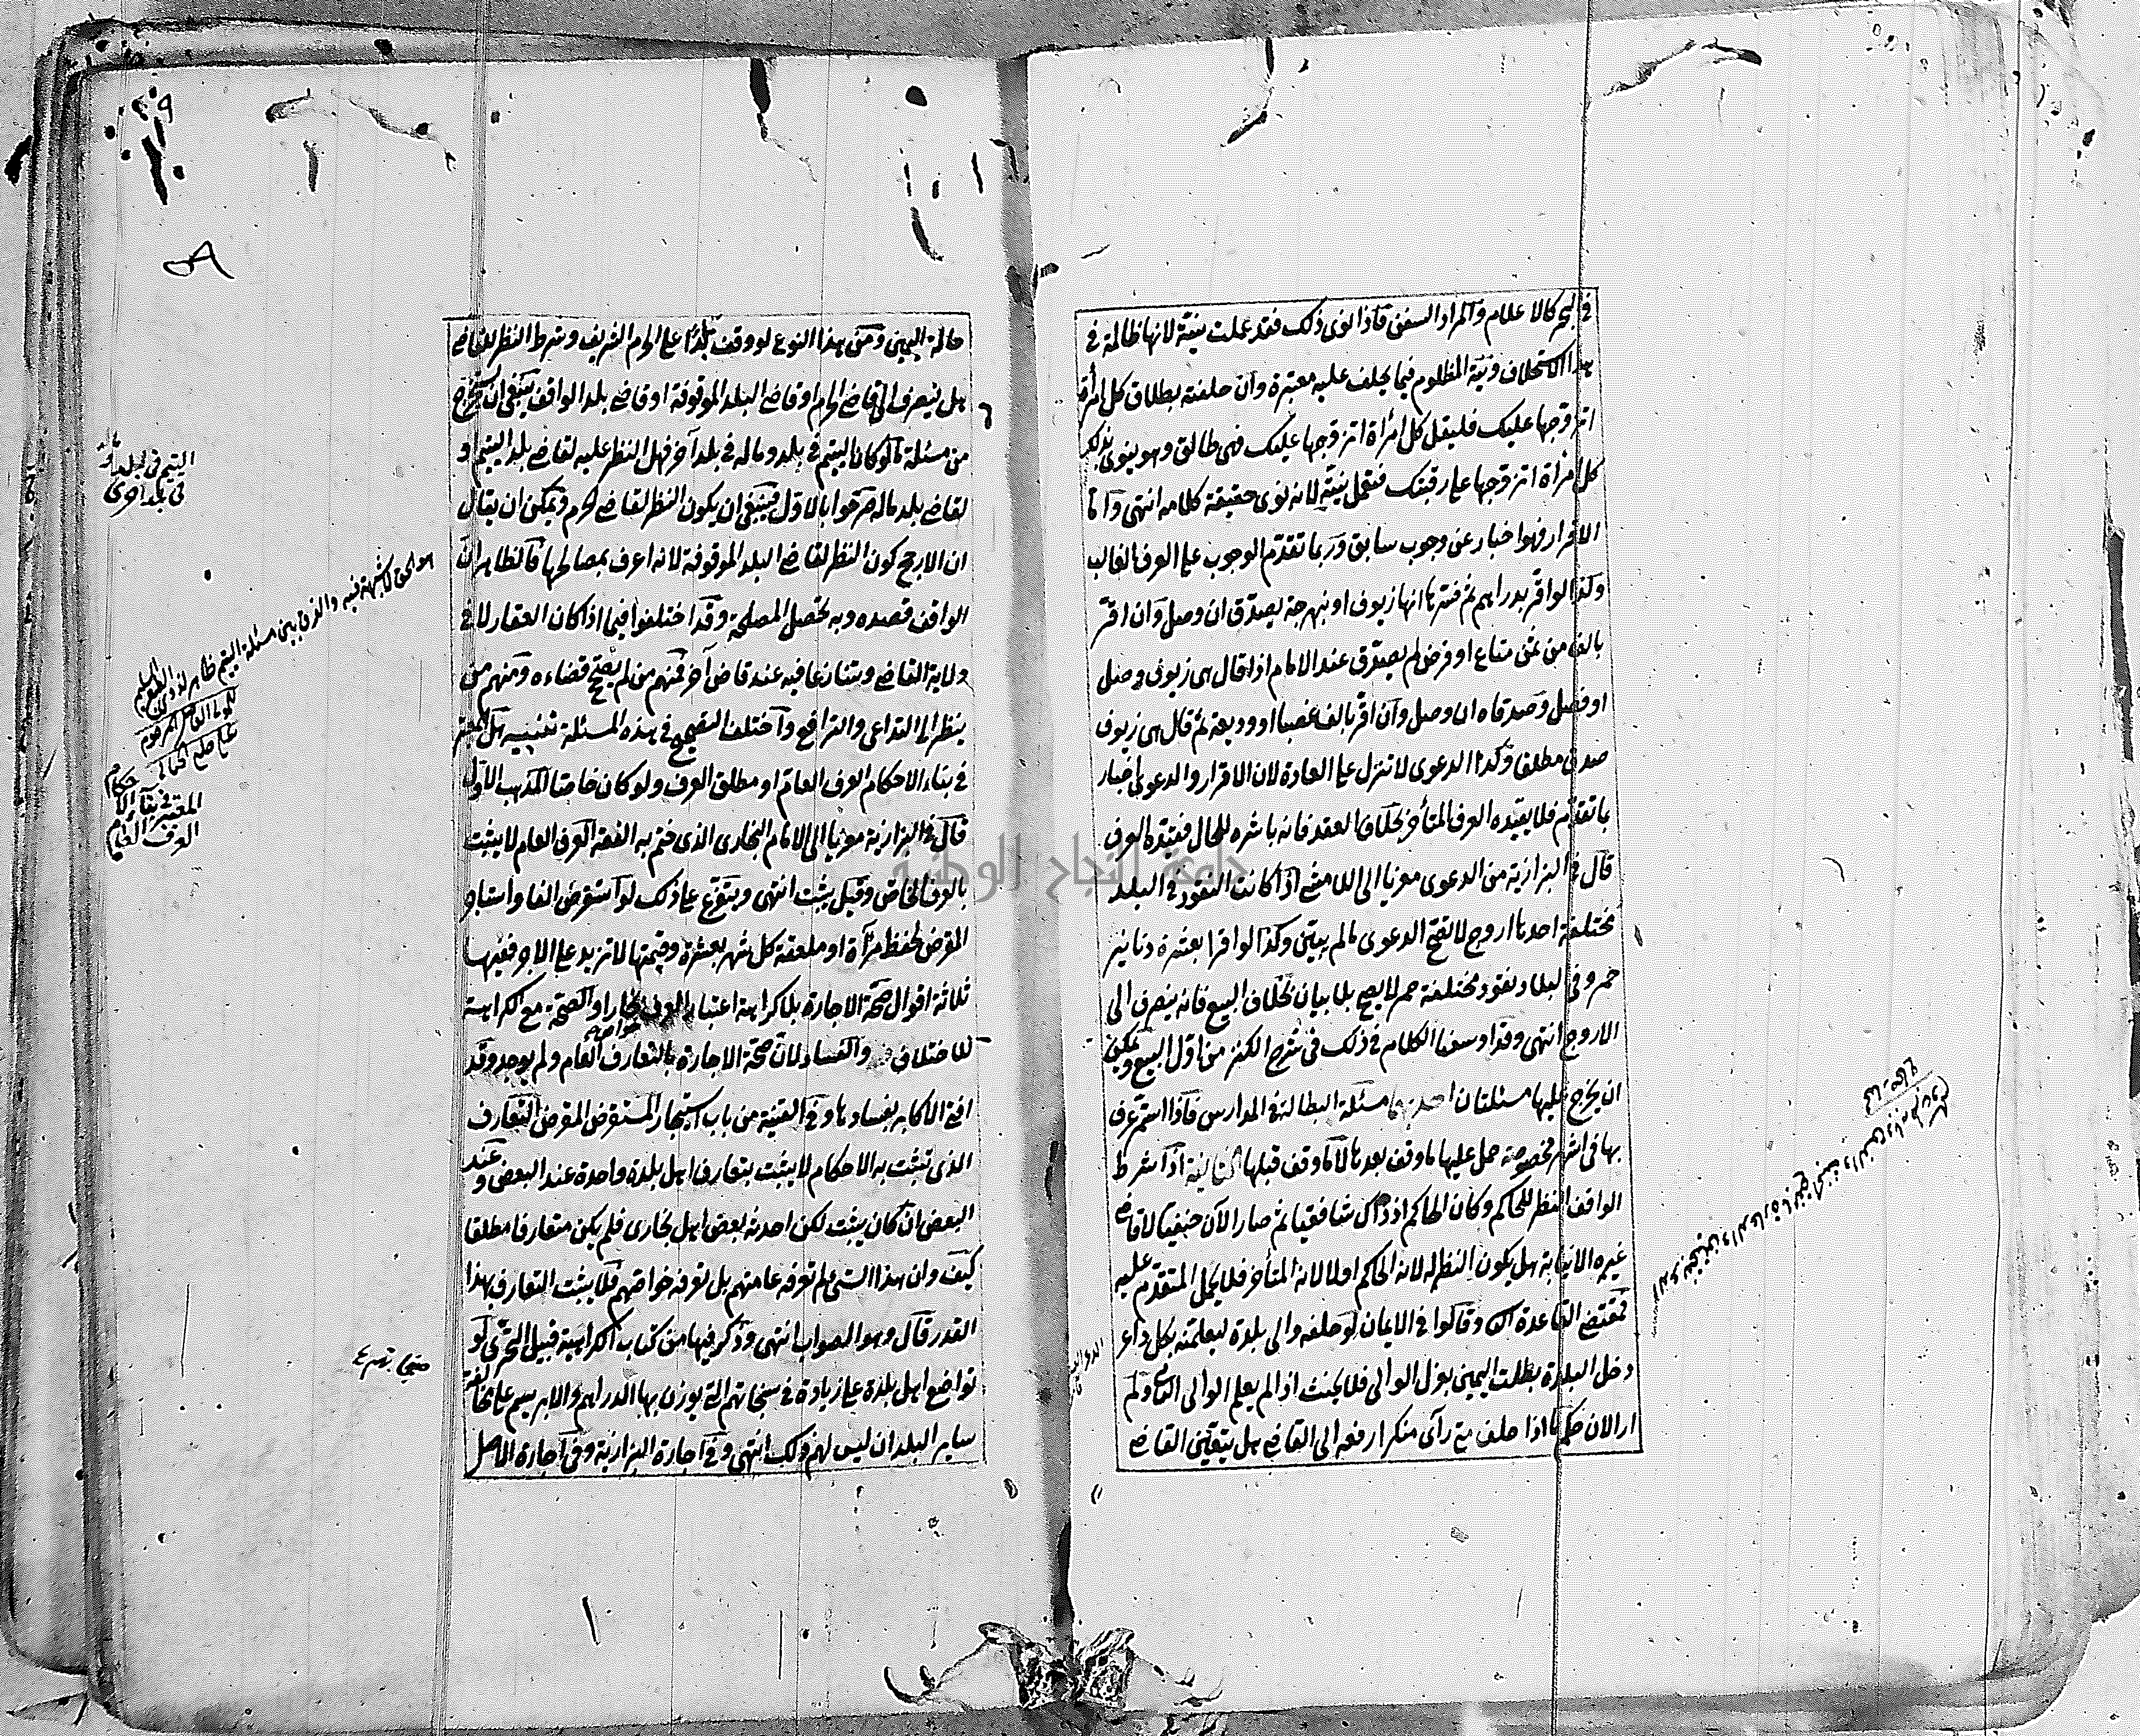 في البحر كالاعلام والمراد السفن فاذا نوى ذلك فقد عملت نيته لانها ظالمة في
هذا الاستحلاف ونية المظلوم فيما يحلف عليه معتبرة وان حلفته بطلاق كل امرأة
اتزوجها عليك فليقل كل امرأة اتزوجها عليك فهي طالق وهو ينوي بذلك
كل امرأة اتزوجها على رقبتك فتعمل نيته لانه نوى حقيقة كلامه انتهى واما
الاقرار فهو اخبار عن وجوب سابق وربما تقدم الوجوب على العرف الغالب
وكذا لو اقر بدراهم ثم فسرها انها زيوف او نبهرجة يصدق ان وصل وان اقر
بالف من ثمن متاع او قرض لم يصدق عند الامام اذا قال هي زيوف وصل
او فصل وصدقاه ان وصل وان اقر بالف غصبا او وديعة ثم قال هي زيوف
صدق مطلقا وكذا الدعوى لا تنزل على العادة لان الاقرار والدعوى اخبار
بما تقدم فلا يقيده العرف المتأخر بخلاف العقد فانه باشره للحال فقيده العرف
قال في البزازية من الدعوى معزيا الى اللامشي اذا كانت النقود في البلد
مختلفة احدها اروج لا تصح الدعوى ما لم يبين وكذا لو اقر بعشرة دنانير
حمر وفي البلد نقود مختلفة حمر لا يصح بلا بيان بخلاف البيع فانه ينصرف الى
الاروج انتهى وقد اوسعنا الكلام في ذلك في شرح الكنز من اول البيع ويمكن
ان يخرج عليها مسئلتان احديهما مسئلة البطالة في المدارس فاذا استمر عرف
بها في اشهر مخصوصة حمل عليها ما وقف بعدها لا ما وقف قبلها الثانية اذا شرط
الواقف النظر للحاكم وكان الحاكم اذ ذاك شافعيا ثم صار الآن حنفيا لا قاضي
غيره الا نيابة هل يكون النظر له لانه الحاكم او لا لانه المتأخر فلا يحمل المتقدم عليه
فمقتضى القاعدة وقالوا في الايمان لو حلفه والي بلدة ليعلمنه بكل داعر
دخل البلدة بطلت اليمين بعزل الوالي فلا يحنث اذا لم يعلم الوالي الثاني ولم
ار الآن حكم ما اذا حلف متى رأى منكرا رفعه الى القاضي هل يتعين القاضي
حالة اليمين ومن هذا النوع لو وقف بلدا على الحرم الشريف وشرط النظر للقاضي
هل ينصرف الى قاضي الحرم او قاضي البلد الموقوفة او قاضي بلد الواقف ينبغي ان يخرج
من مسئلة ما لو كان اليتيم في بلد وماله في بلد آخر فهل النظر عليه لقاضي بلد اليتيم او
لقاضي بلد ماله صرحوا بالاول فينبغي ان يكون النظر لقاضي الحرم ويمكن ان يقال
ان الارجح كون النظر لقاضي البلد الموقوفة لانه اعرف بمصالحها فالظاهر ان
الواقف قصده وبه تحصل المصلحة وقد اختلفوا فيما اذا كان العقار لا في
ولاية القاضي وتنازعا فيه عند قاض آخر فمنهم من لم يصح قضاءه ومنهم من
ينظر الى التداعي والترافع واختلف التصحيح في هذه المسئلة تنبيه هل المعتبر
في بناء الاحكام العرف العام او مطلق العرف ولو كان خاصا المذهب الاول
قال في البزازية معزيا الى الامام البخاري الذي ختم به الفقه العرف العام لا يثبت
بالعرف الخاص وقيل يثبت انتهى ويتفرع على ذلك لو استقرض الفا واستاجر
المقرض لحفظ مرآة او ملعقة كل شهر بعشرة وقيمتها لا تزيد على الاجر ففيها
ثلاثة اقوال صحة الاجارة بلا كراهة اعتبارا لعرف بخارا والصحة مع الكراهة
للاختلاف والفساد لان صحة الاجارة بالتعارف العام ولم يوجد وقد
افتى الاكابر بفسادها وفي القنية من باب استيجار المستقرض المقرض التعارف
الذي تثبت به الاحكام لا يثبت بتعارف اهل بلدة واحدة عند البعض وعند
البعض ان كان يثبت لكن احدثه بعض اهل بخارى فلم يكن متعارفا مطلقا
كيف وان هذا الشيء لم تعرفه عامتهم بل تعرفه خواصهم فلا يثبت التعارف بهذا
القدر قال وهو الصواب انتهى وذكر فيها من كتاب الكراهية قبيل التحري لو
تواضع اهل بلدة على زيادة في سنجاتهم التي يوزن بها الدراهم والابريسم على مخالفة
ساير البلدان ليس لهم ذلك انتهى وفي اجارة البزازية وفي اجارة الاصل
اليتيم في بلد وماله
في بلد اخرى
هو الحق لا شبهة فيه والفرق بين مسئلة اليتيم ظاهر
المعتبر في بناء الاحكام
العرف العام
جامعة النجاح الوطنية